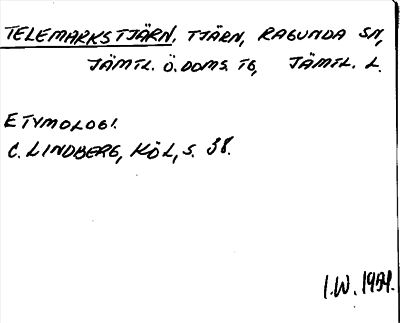 TELEMARKSTJÄRN. TJÄRN, RAGUNDA SN,
JÄMTL. Ö. DOMS. TG, JÄMTL. L.
ETYMOLOGI.
C. LINDBERG, KÖL, S. 38.
I.W. 1954.